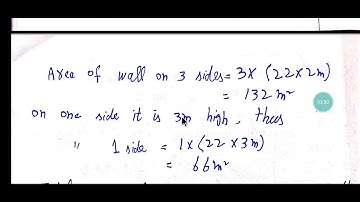 Area of wall on 3 sides = 3 x (22 x 2m)
= 132 m²
on one side it is 3m high, thus
" 1 side = 1 x (22 x 3m)
= 66m²